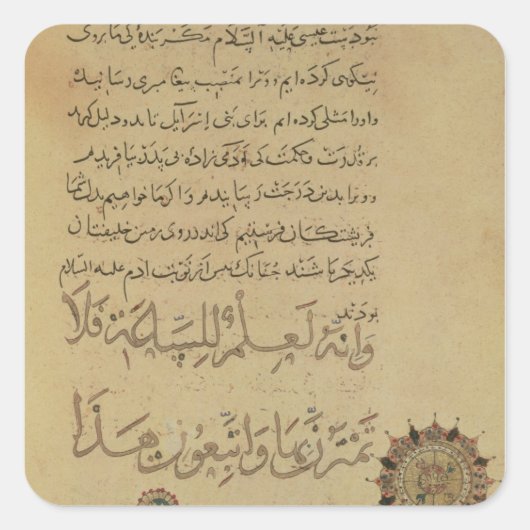 نبودست عیسی علیه السلام مگر بندهٔ کی ما بروی
نیکوی کرده ایم و ویرا بمنصب پیغامبری رسانیده
و او را مثلی کرده ایم برای بنی اسرآیل تا بدو دلیل کیرند
بر قدرت و حکمت کی فرزندی بی پدر بیافریدم
و ویرا بدین درجت رسانیدم و اگر ما خواهیم بدل شما
فریشتکان فرستیم کی اندر روی زمین خلیفتان
یکدیکر باشند چنانک پس از نوبت ادم علیه السلام
بودند
وَإِنَّهُ لَعِلْمٌ لِلسَّاعَةِ فَلَا
تَمْتَرُنَّ بِهَا وَاتَّبِعُونِ هَذَا